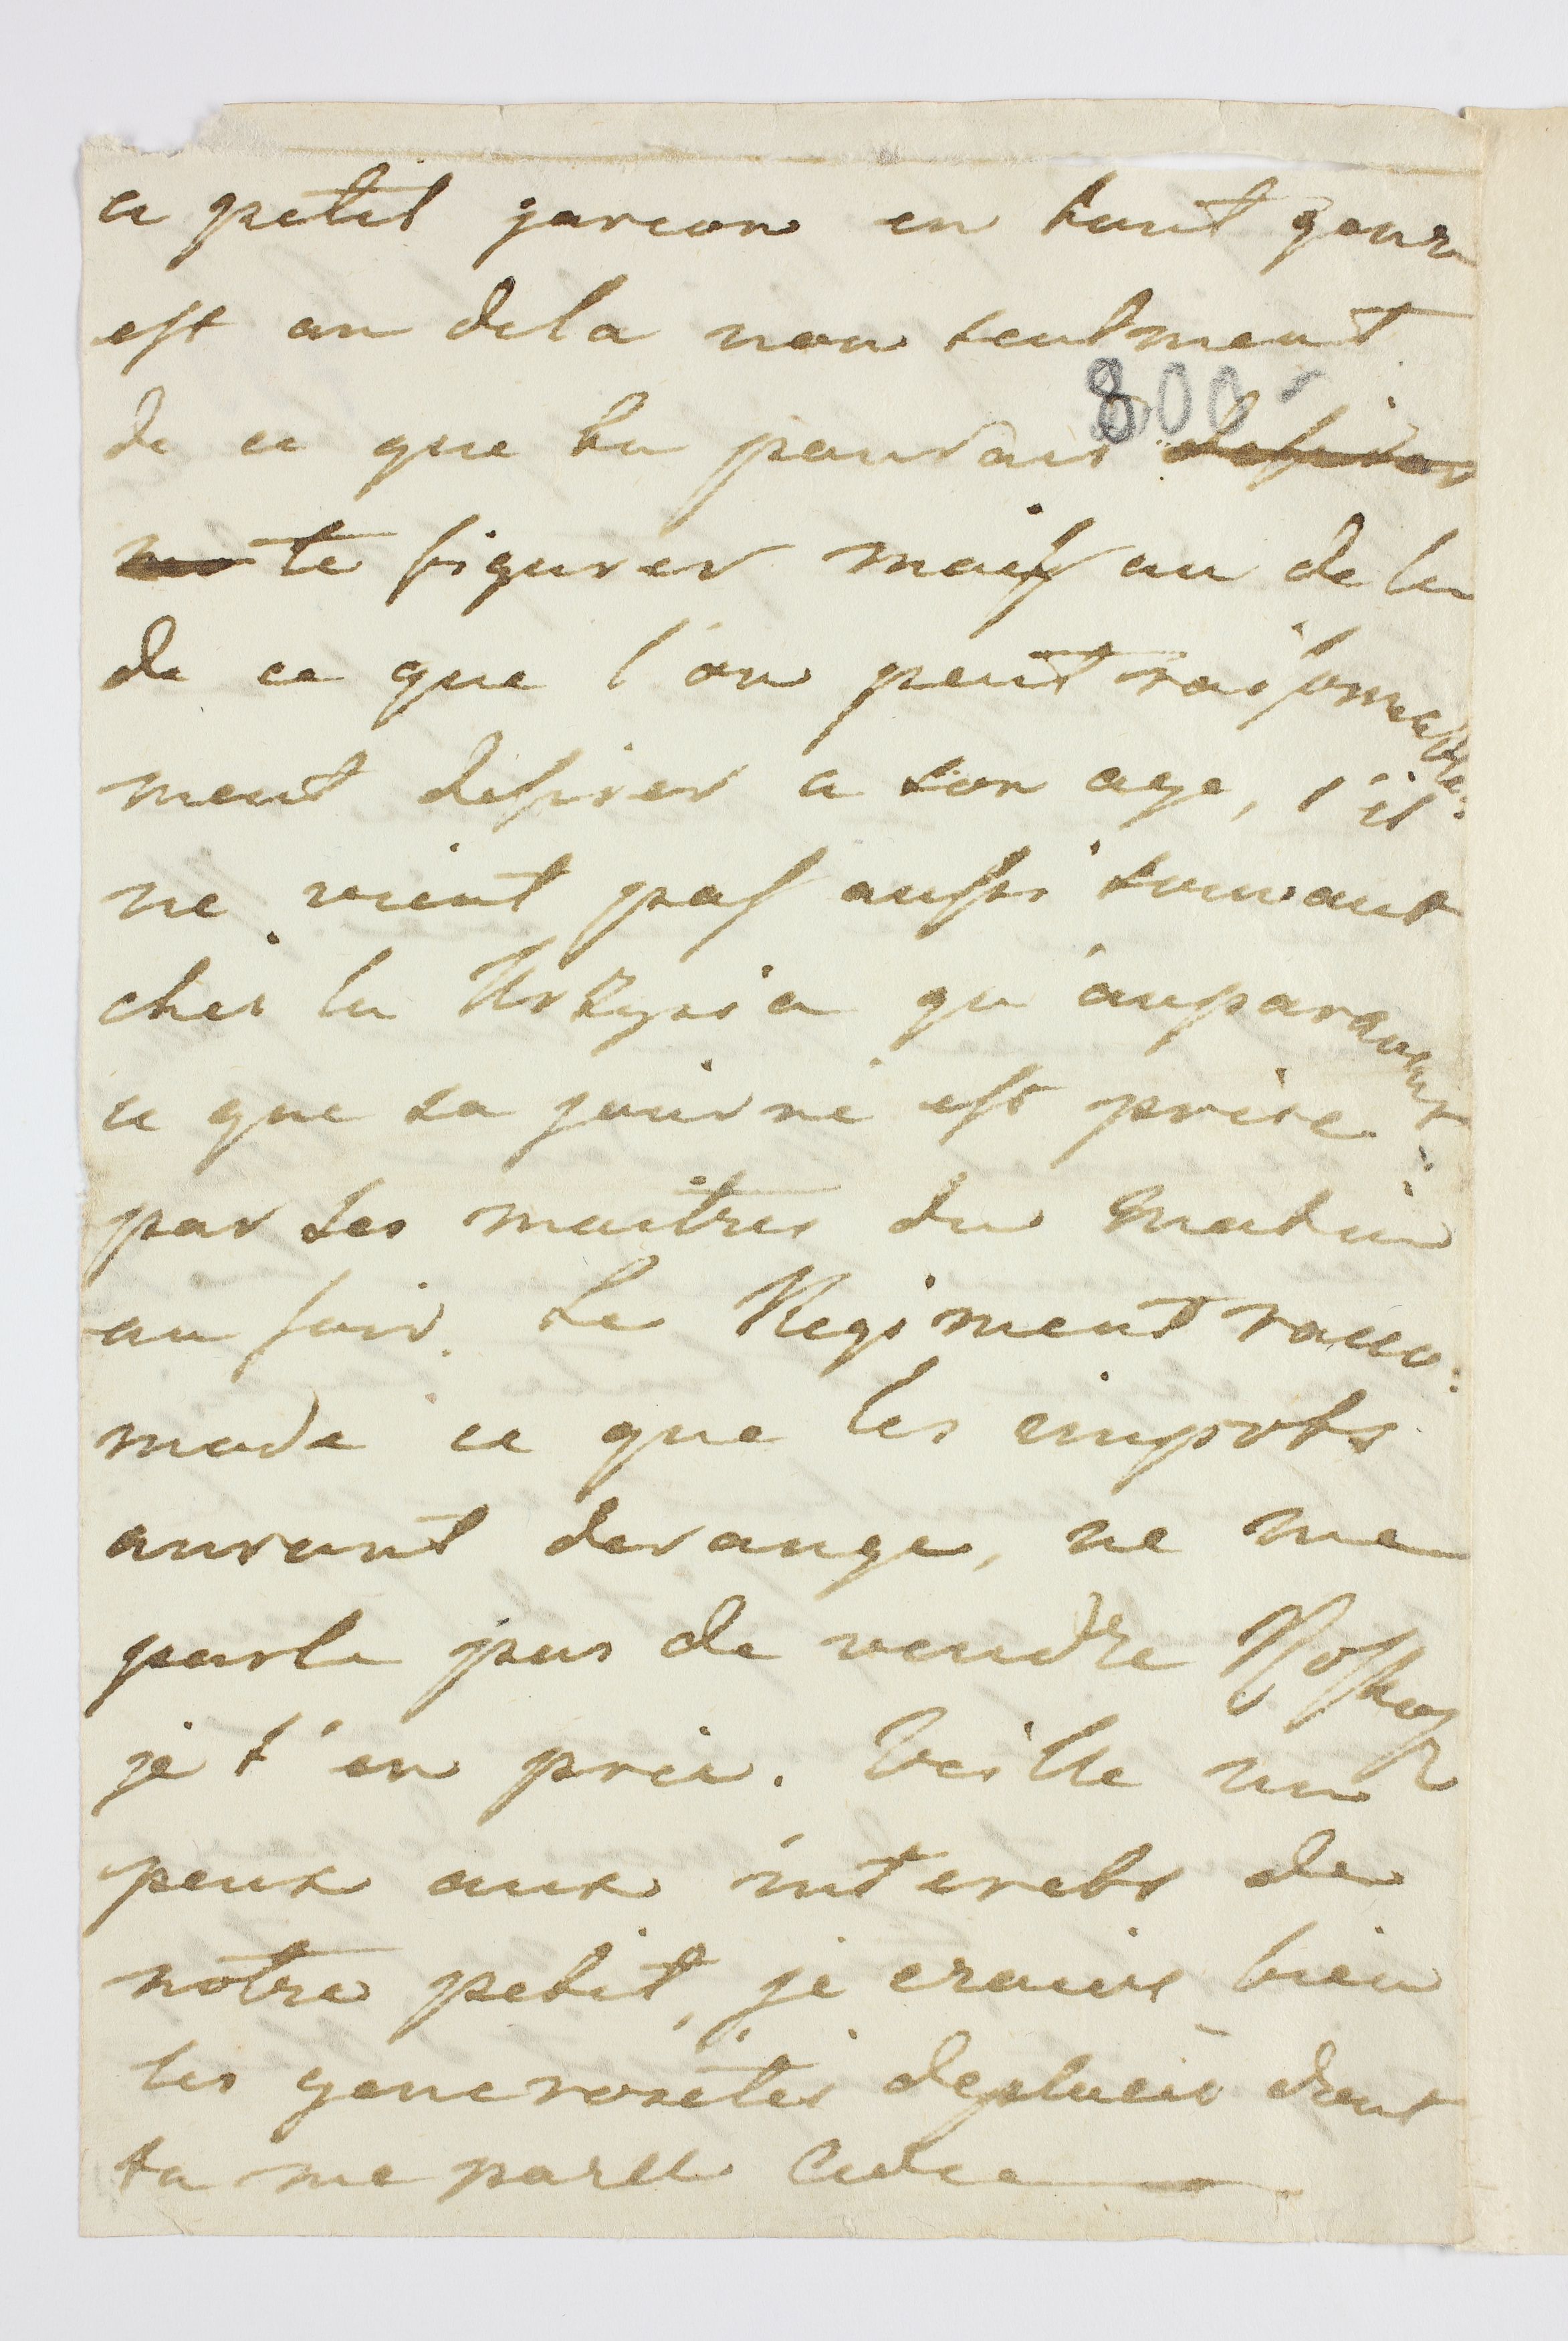 ce petit garcon en tout genre
est au dela non seulment
de ce que tu pouvais desirer
800
te figurer maiſ au de la
de ce que l'on peut raiſonnable:
ment deſirer a son age, s'il
ne vient paſ auſsi souvant
chez la qu'auparavant:
ce que sa journé eſt prise
par ses maitres du matin
au ſoir. Le Regiment racco:
mode ce que les impots
auront derangé, ne me
parle pas de vendre
je t'en prie. Veille un
peux aux interets de
notre petit, je crains bien
les generosités deplacés dont
tu me parle